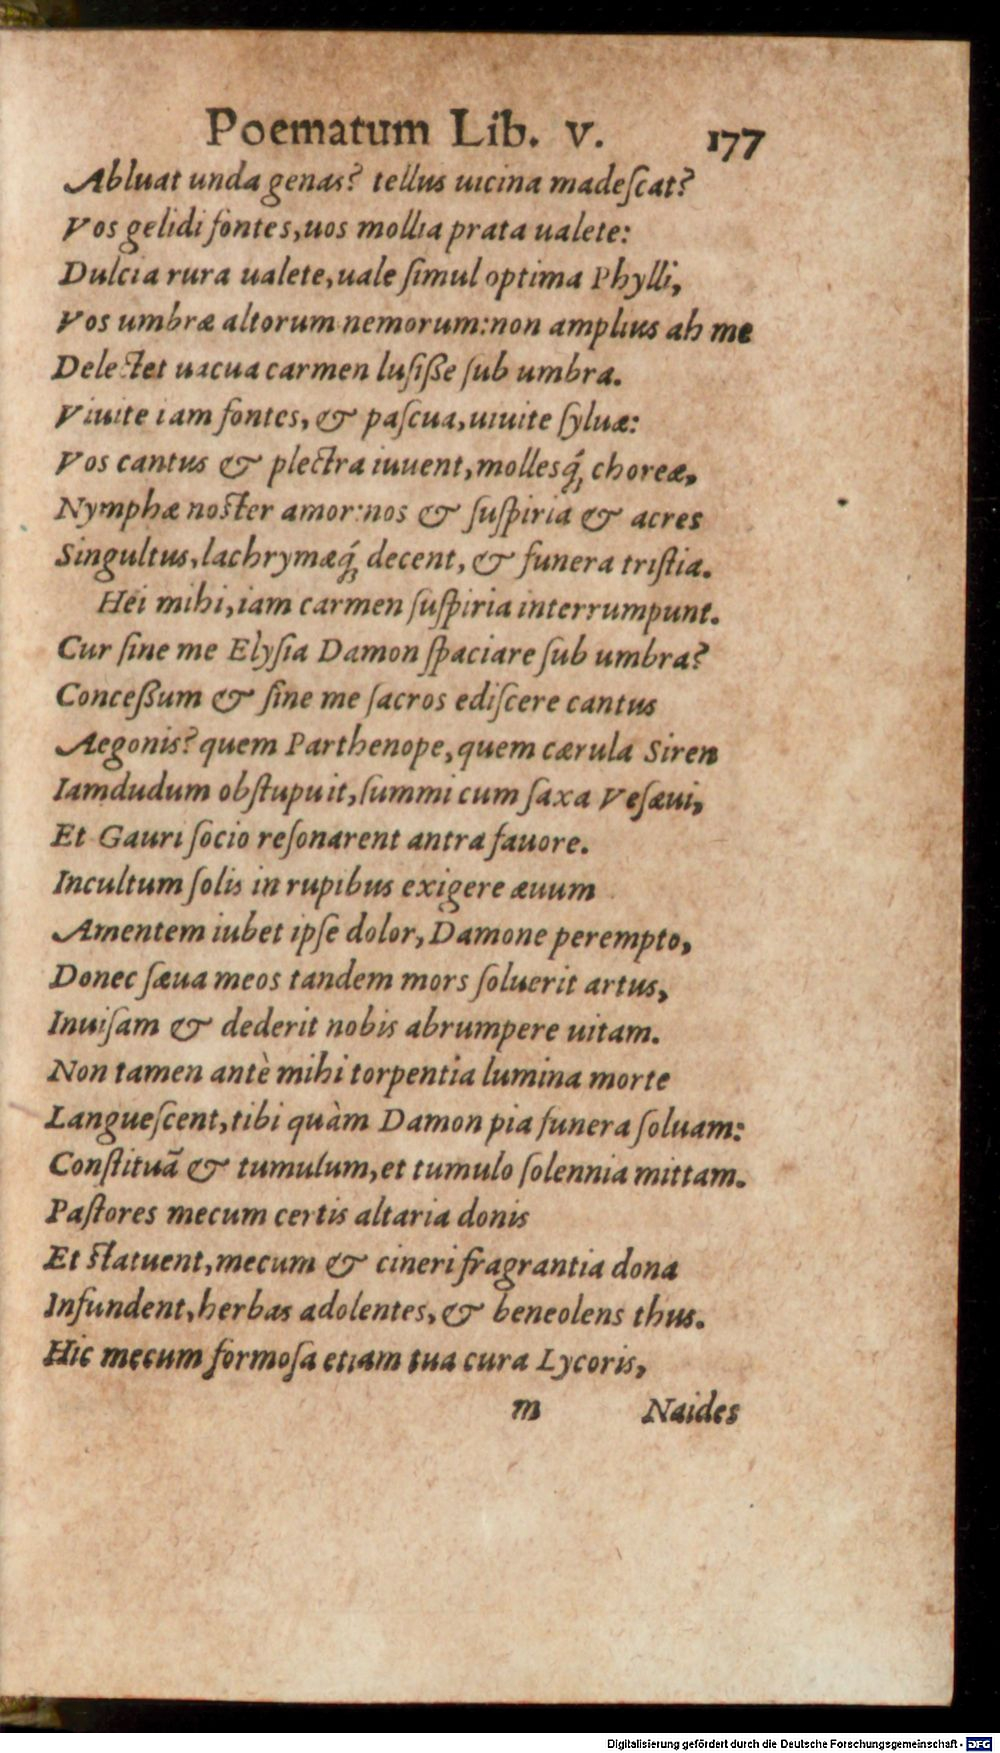 Poematum Lib. v. 177
Abluat unda genas? tellus uicina madeſcat?
Vos gelidi fontes, uos mollia prata ualete:
Dulcia rura ualete, uale ſimul optima Phylli,
Vos umbræ altorum nemorum: non amplius ah me
Delectet uacua carmen luſiſſe ſub umbra.
Viuite iam fontes, & paſcua, uiuite ſyluæ:
Vos cantus & plectra iuuent, mollesq́; choreæ,
Nymphæ noſter amor: nos & ſuſpiria & acres
Singultus, lachrymæq́; decent, & funera triſtia.
Hei mihi, iam carmen ſuſpiria interrumpunt.
Cur ſine me Elyſia Damon ſpaciare ſub umbra?
Conceſſum & ſine me ſacros ediſcere cantus
Aegonis? quem Parthenope, quem cærula Siren
Iamdudum obſtupuit, ſummi cum ſaxa Veſæui,
Et Gauri ſocio reſonarent antra fauore.
Incultum ſolis in rupibus exigere æuum
Amentem iubet ipſe dolor, Damone perempto,
Donec ſæua meos tandem mors ſoluerit artus,
Inuiſam & dederit nobis abrumpere uitam.
Non tamen antè mihi torpentia lumina morte
Langueſcent, tibi quàm Damon pia funera ſoluam:
Conſtituã & tumulum, et tumulo ſolennia mittam.
Paſtores mecum certis altaria donis
Et ſtatuent, mecum & cineri fragrantia dona
Infundent, herbas adolentes, & beneolens thus.
Hic mecum formoſa etiam tua cura Lycoris,
m Naides
Digitalisierung gefördert durch die Deutsche Forschungsgemeinschaft - DFG